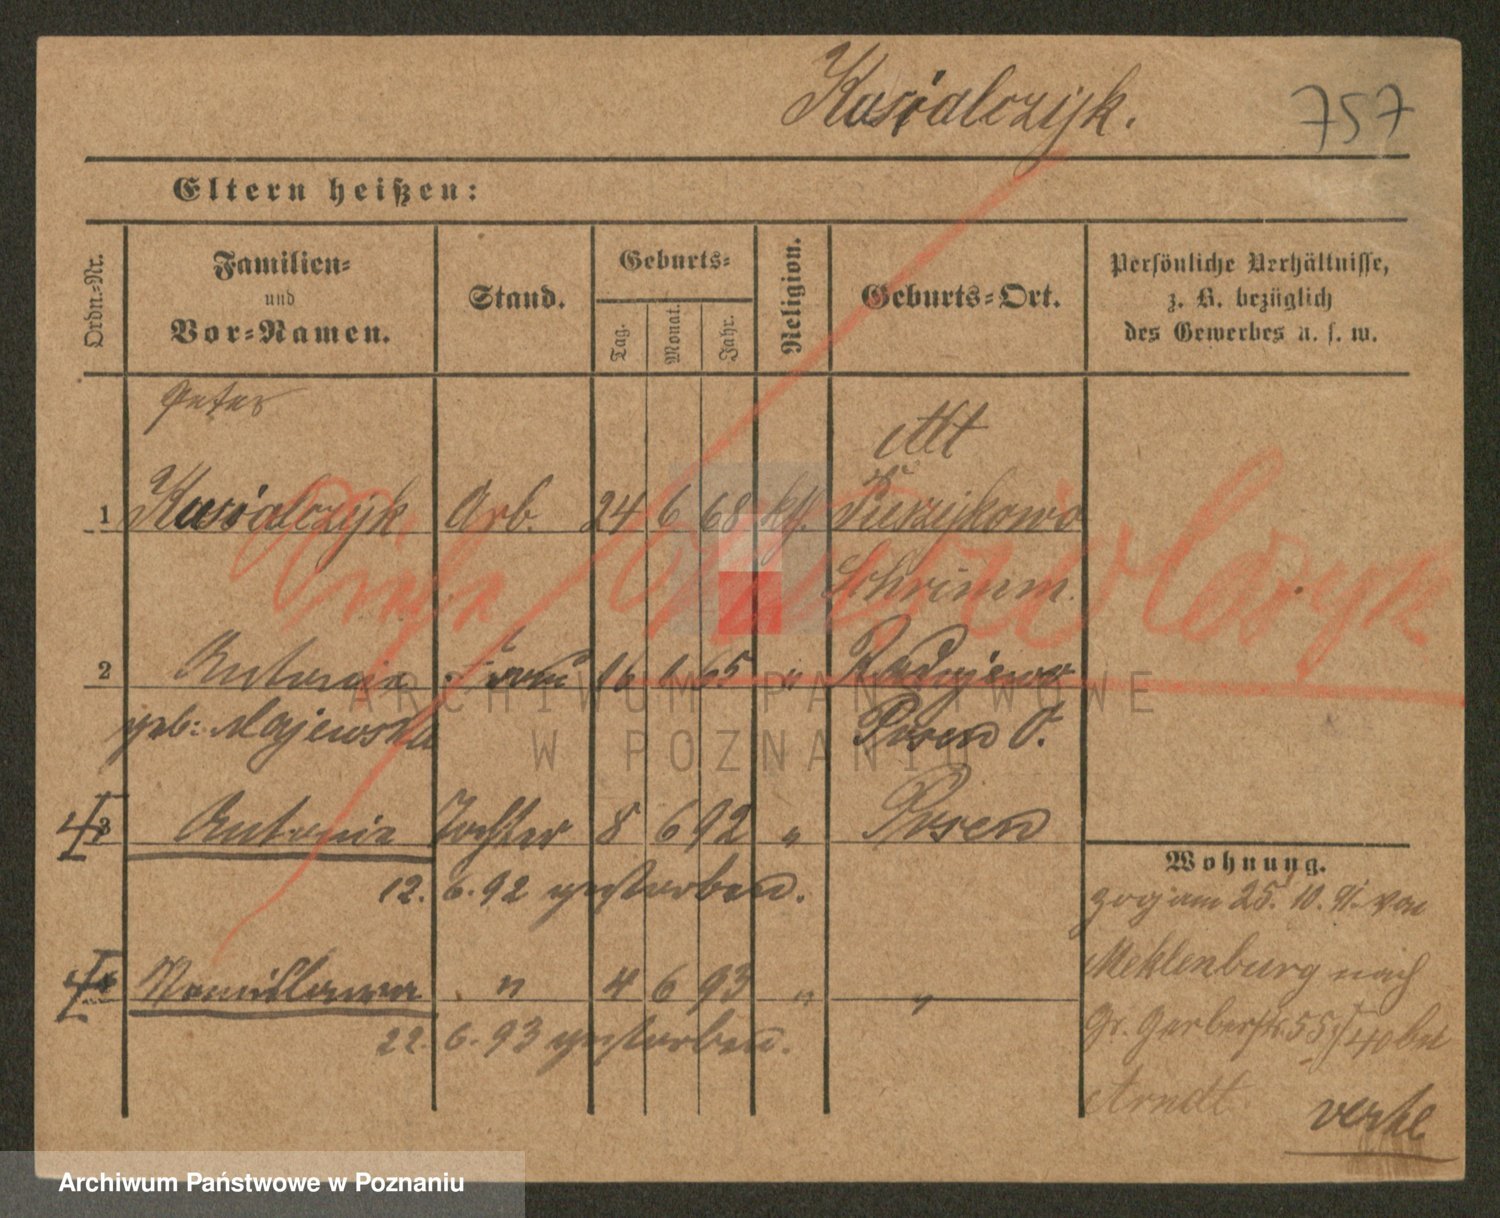 Kusialczyk.
757
Eltern heißen:
Ordn.-Nr.
Familien-
und
Vor-Namen.
Stand.
Geburts-
Tag.
Monat.
Jahr.
Religion.
Geburts-Ort.
Persönliche Verhältnisse,
z. B. bezüglich
des Gewerbes u. s. w.
Peter
Alt
1 Kusialczyk Arb. 24 6 68 kth.
Siehe
Schrimm.
2 Antonie Frau 16 1 65 " Radojewo
geb: Majewska Posen O.
3 Antonie Tochter 8 6 92 " Posen
12. 6. 92 gestorben.
4 Stanislawa " 4 6 93 " "
22. 6. 93 gestorben.
Wohnung.
zog am 25. 10. 91. von
Meklenburg nach
Gr. Gerberstr. 55 bei
Arndt
ARCHIWUM PAŃSTWOWE
W POZNANIU
Archiwum Państwowe w Poznaniu